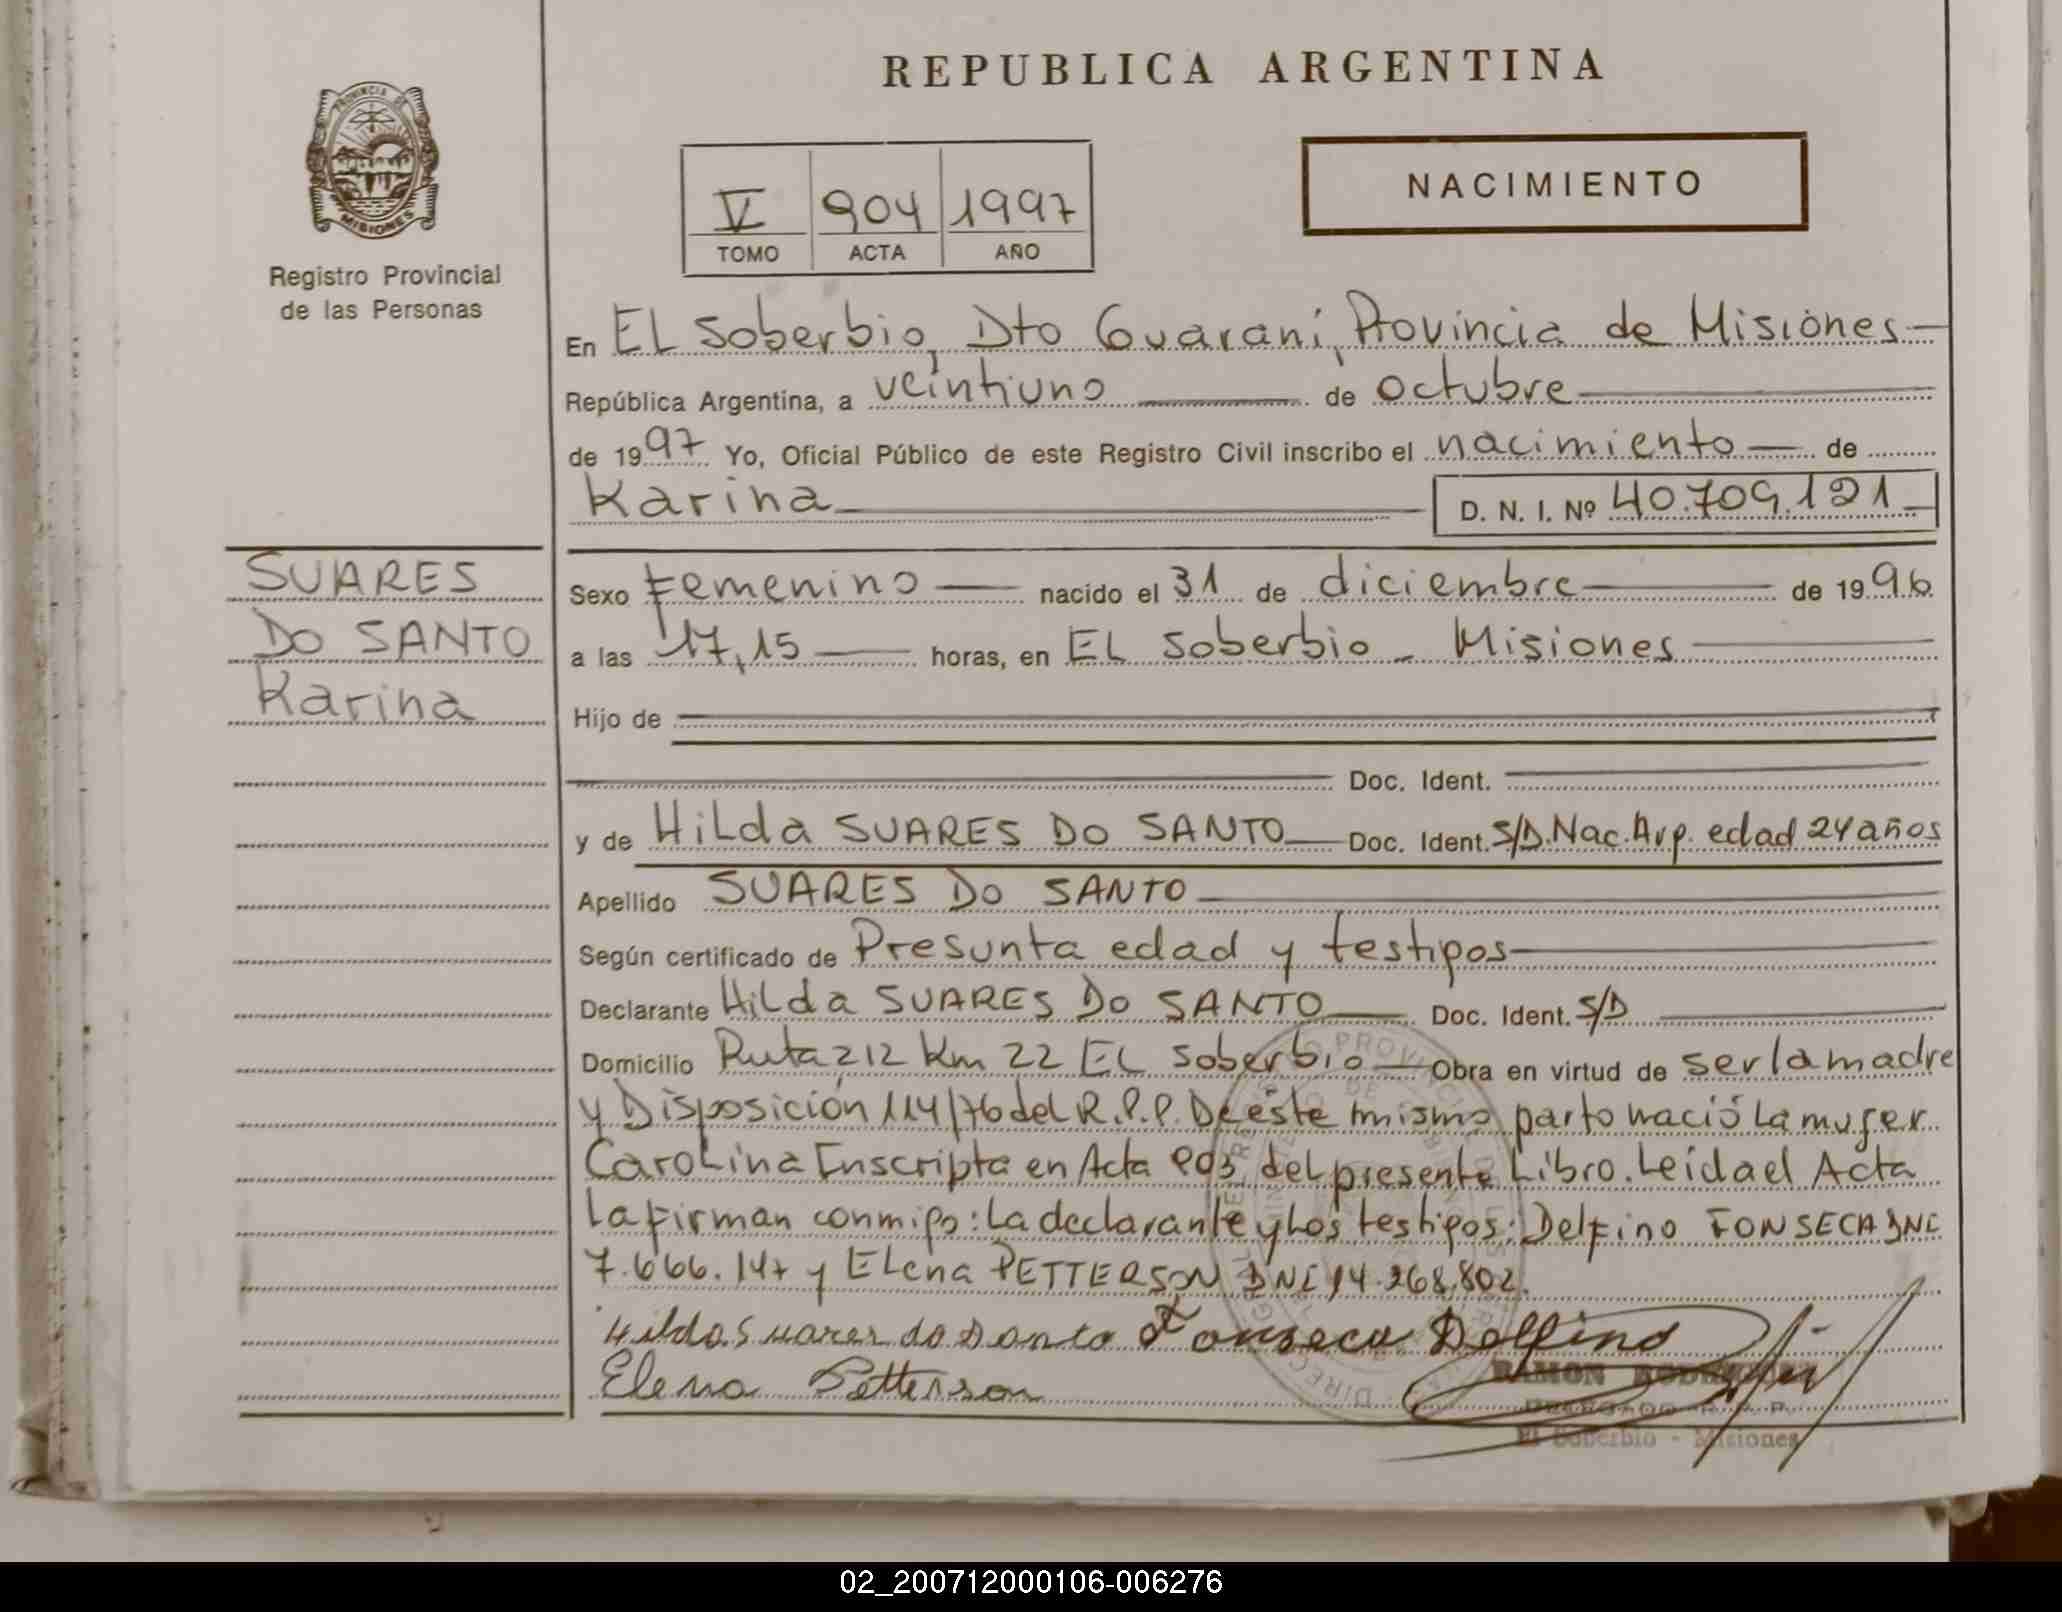 REPUBLICA ARGENTINA
PROVINCIA DE MISIONES
Registro Provincial
de las Personas
V 904 1997
TOMO ACTA AÑO
NACIMIENTO
En EL Soberbio, Dto Guaraní, Provincia de Misiones
República Argentina, a veintiuno de octubre
de 1997 Yo, Oficial Público de este Registro Civil inscribo el nacimiento de
Karina D. N. I. Nº 40.709.121
SUARES
DO SANTO
Karina
Sexo Femenino nacido el 31 de diciembre de 1996
a las 17,15 horas, en EL Soberbio - Misiones
Hijo de
Doc. Ident.
y de HiLda SUARES DO SANTO Doc. Ident. S/D. Nac. Arg. edad 24 años
Apellido SUARES DO SANTO
Según certificado de Presunta edad y testigos
Declarante HiLda SUARES DO SANTO Doc. Ident. S/D
Domicilio Ruta 212 Km 22 EL Soberbio Obra en virtud de ser la madre
y Disposición 114/76 del R.P.P. De éste mismo parto nació La mujer
CaroLina Inscripta en Acta 903 deL presente Libro. Leida el Acta
La firman conmigo: La declarante y Los testigos: Delfino FONSECA DNI
7.666.147 y ELena PETTERSON DNI 14.268.802.
Hilda Suares do Santo Fonseca Delfino
Elena Petterson
RAMON
DELEGADO R. P. P.
El Soberbio - Misiones
02_200712000106-006276